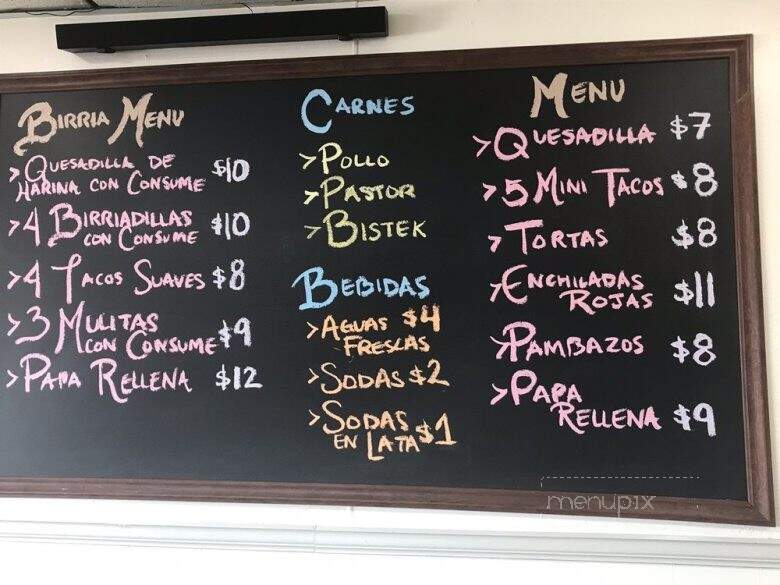 BIRRIA MENU
>QUESADILLA DE
HARINA CON CONSUME $10
>4 BIRRIADILLAS
CON CONSUME $10
>4 TACOS SUAVES $8
>3 MULITAS
CON CONSUME $9
>PAPA RELLENA $12
CARNES
>POLLO
>PASTOR
>BISTEK
BEBIDAS
>AGUAS $4
FRESCAS
>SODAS $2
>SODAS
EN LATA $1
MENU
>QUESADILLA $7
>5 MINI TACOS $8
>TORTAS $8
>ENCHILADAS
ROJAS $11
>PAMBAZOS $8
>PAPA
RELLENA $9
menupix